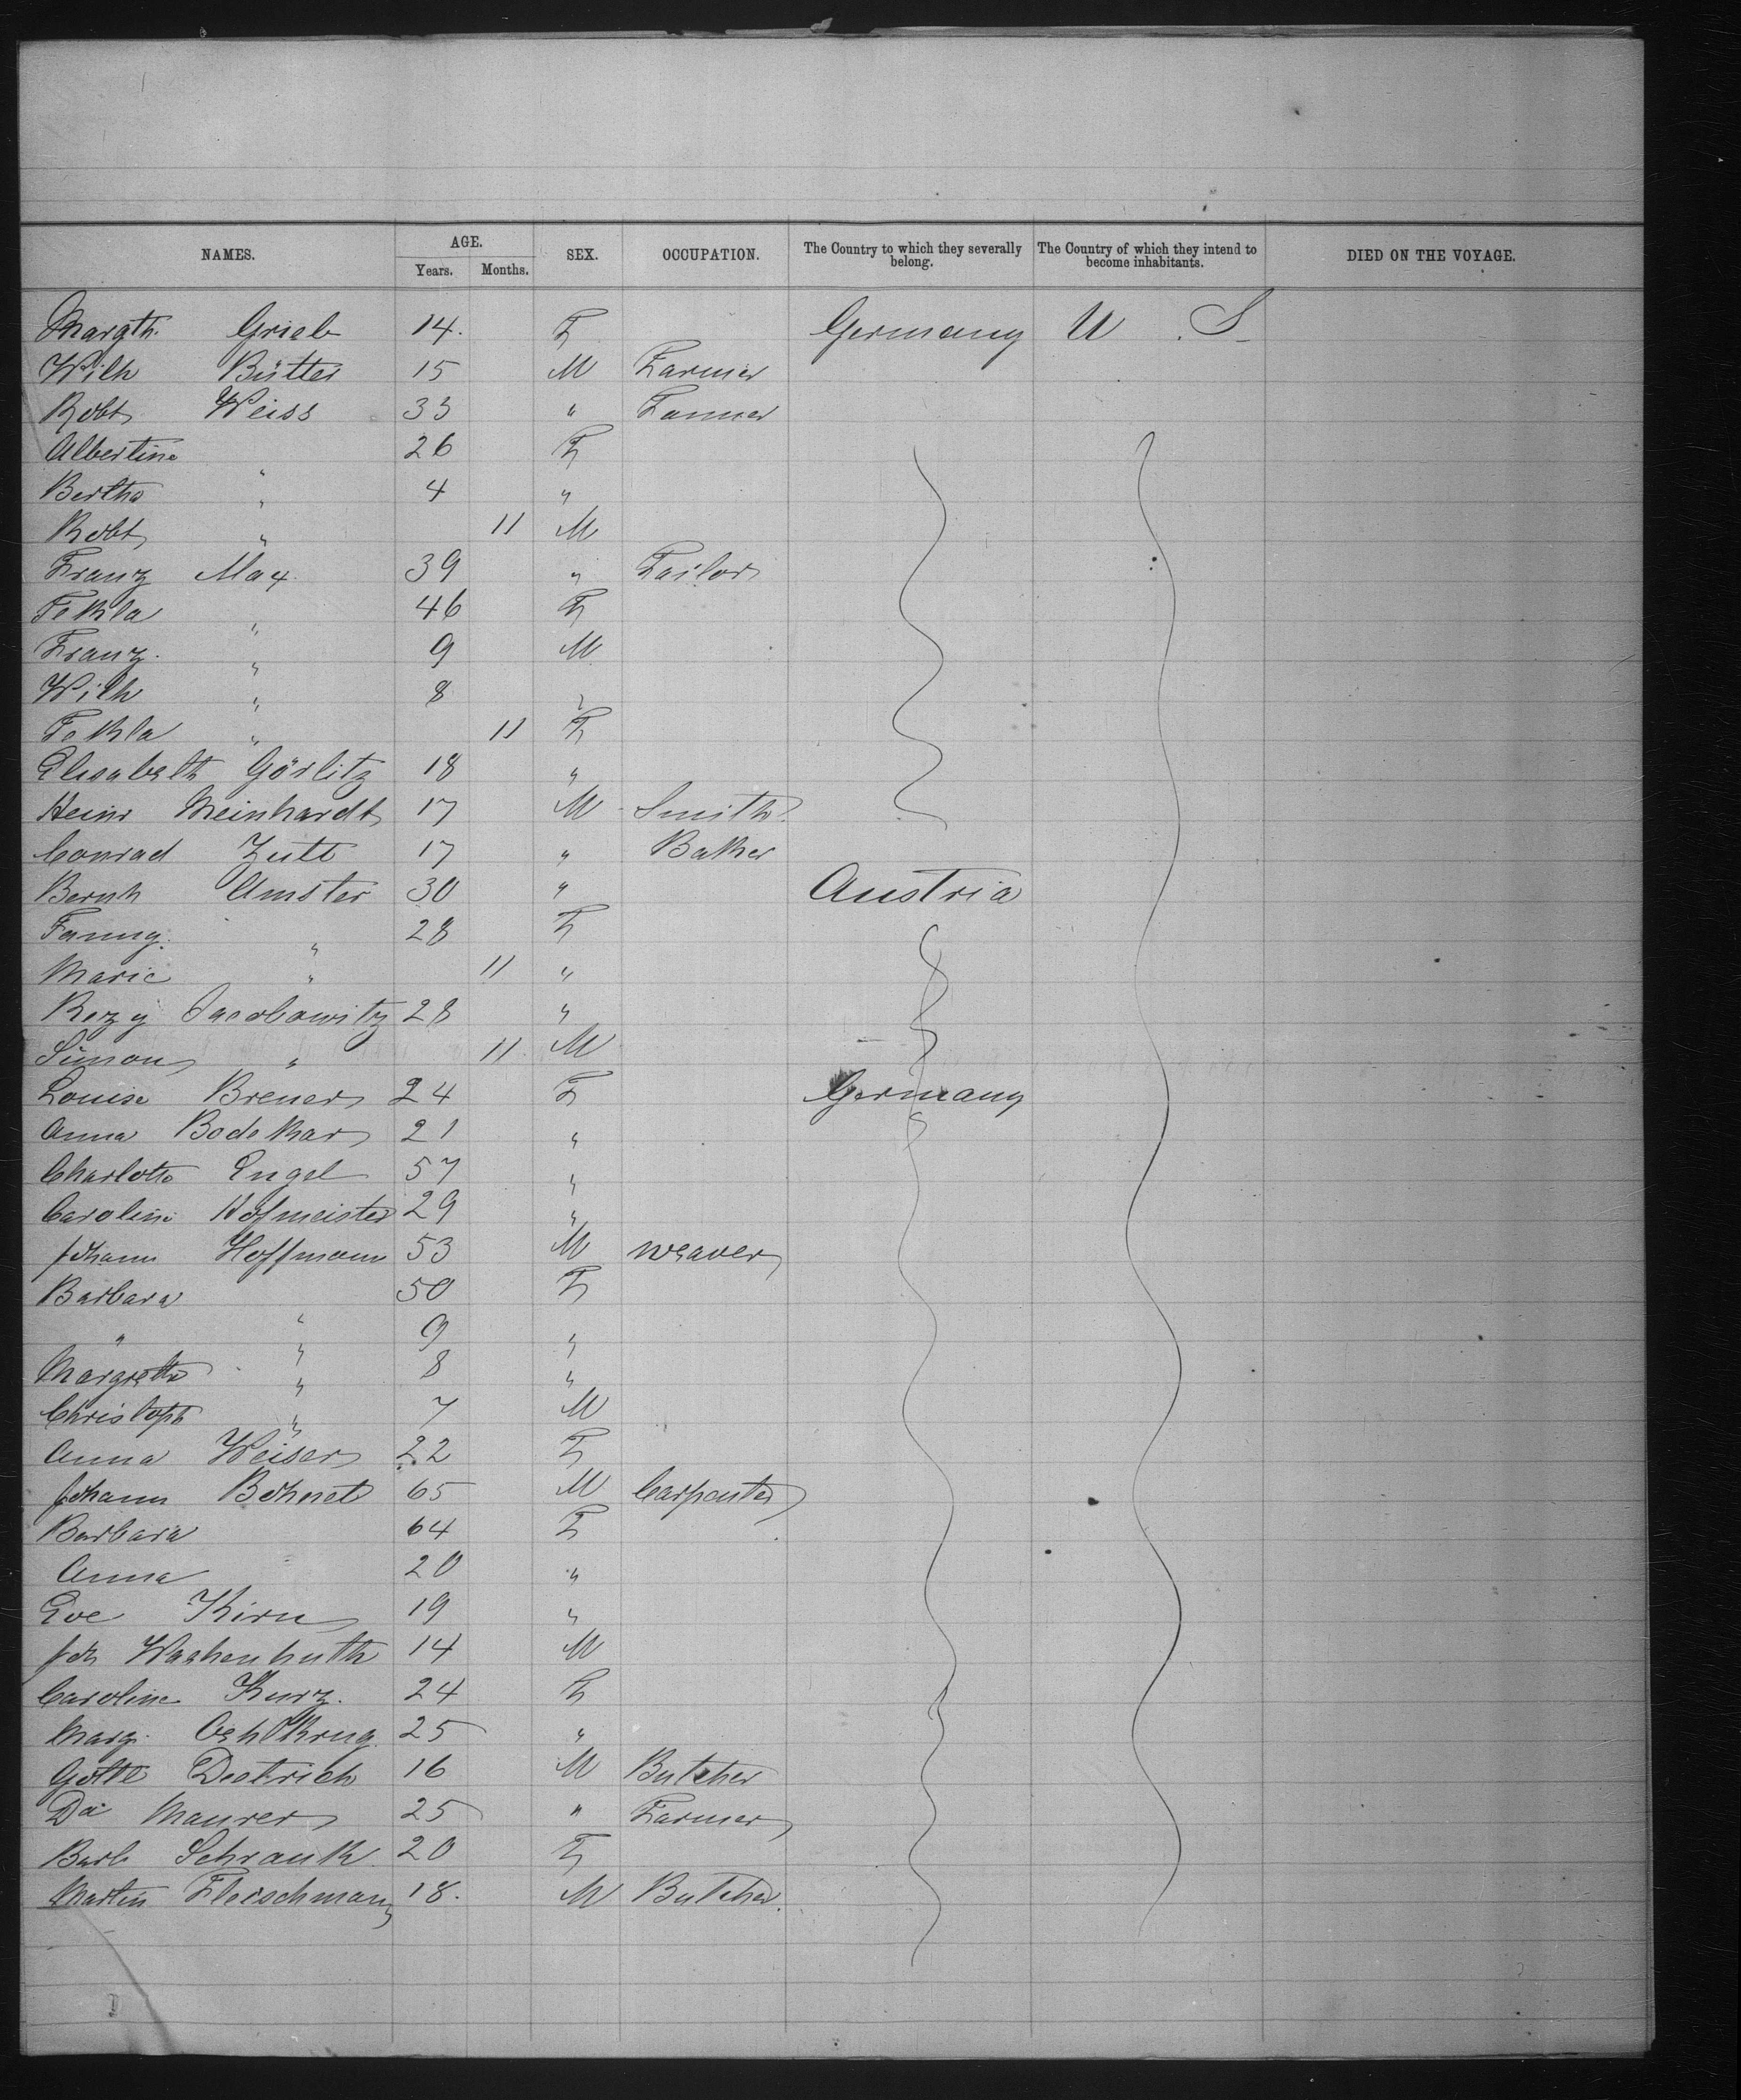 NAMES. AGE. Years. Months. SEX. OCCUPATION. The Country to which they severally belong. The Country of which they intend to become inhabitants. DIED ON THE VOYAGE.
Margth. Grieb 14. F Germany U. S.
Wilh Bütter 15 M Farmer
Robt Weiss 33 " Tanner
Albertine " 26 F
Bertha " 4 "
Robt " 11 M
Franz May 39 " Tailor
Tekla " 46 F
Franz " 9 M
Wilh " 8 "
Tekla " 11 F
Elisabeth Görlitz 18 "
Heinr Meinhardt 17 M Smith
Conrad Zutt 17 " Baker
Bernh Amster 30 " Austria
Fanny " 28 F
Marie " 11 "
Rezy Jacobowitz 28 "
Simon " 11 M
Louise Brener 24 F Germany
Anna Bodekar 21 "
Charlotte Engel 57 "
Caroline Hofmeister 29 "
Johann Hoffmann 53 M weaver
Barbara " 50 F
" " 9 "
Margretha " 8 "
Christoph " 7 M
Anna Weiser 22 F
Johann Böhnet 65 M Carpenter
Barbara 64 F
Anna 20 "
Eve Kirn 19 "
Joh Washenhuth 14 M
Caroline Kurz. 24 F
Marg. Oehlkrug 25 "
Gottl Dietrich 16 M Butcher
Maurer 25 " Farmer
Barb Schrank 20 F
Martin Fleischmann 18. M Butcher.